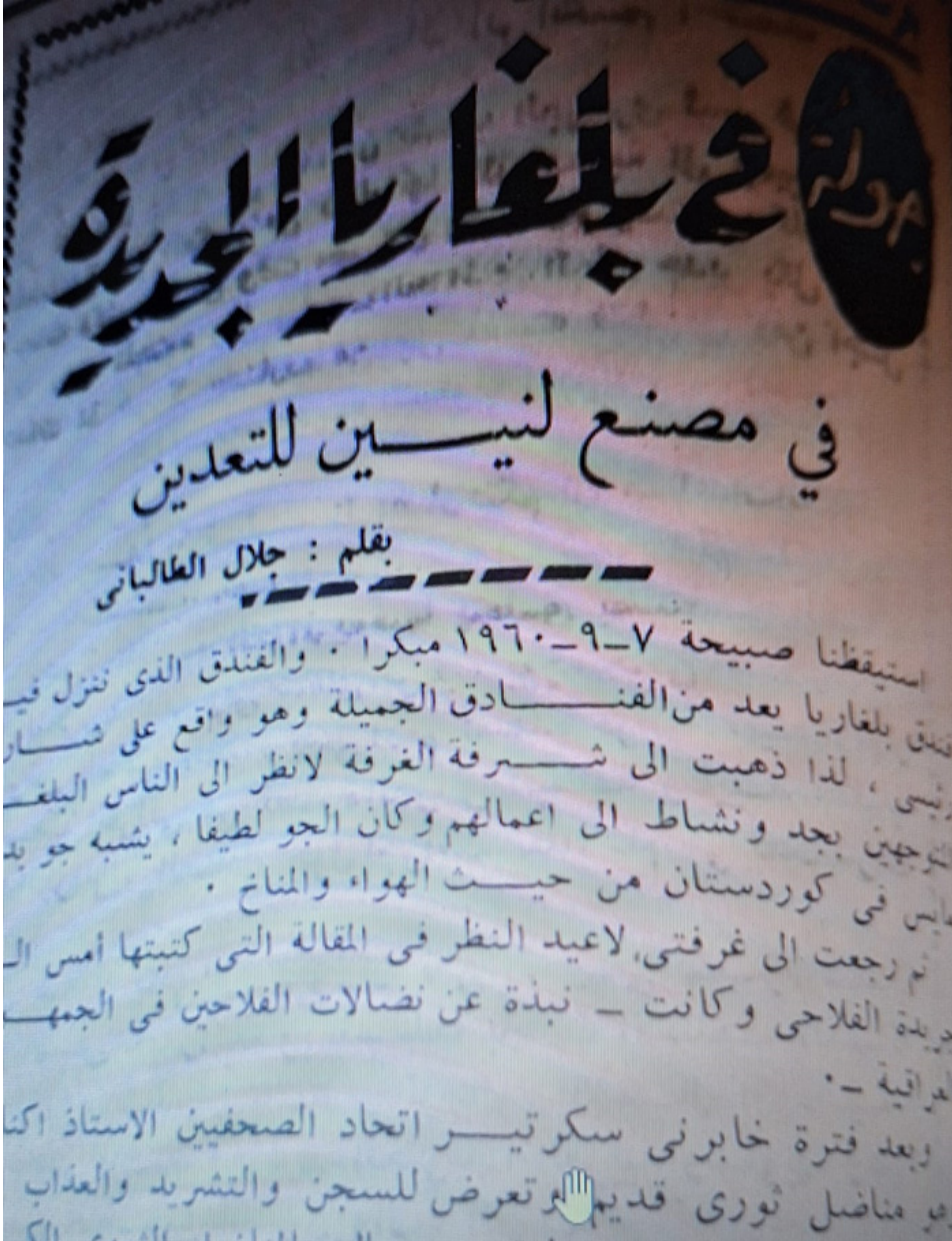 جولة
في بلغاريا الجديدة
في مصنع لنيــــين للتعدين
بقلم : جلال الطالباني
استيقظنا صبيحة ٧–٩–١٩٦٠ مبكرا ٠ والفندق الذى ننزل فيـ
بلغاريا يعد من الفنـــــادق الجميلة وهو واقع على شـــار
، لذا ذهبت الى شـــــرفة الغرفة لانظر الى الناس البلغـ
بجد ونشاط الى اعمالهم وكان الجو لطيفا ، يشبه جو
فى كوردستان من حيـــث الهواء والمناخ ٠
ثم رجعت الى غرفتى لاعيد النظر فى المقالة التى كتبتها أمس الـ
الفلاحى وكانت – نبذة عن نضالات الفلاحين فى الجمهـ
ـراقية –٠
وبعد فترة خابرنى سكرتيـــر اتحاد الصحفيين الاستاذ
مناضل ثورى قديم وتعرض للسجن والتشريد والعذاب